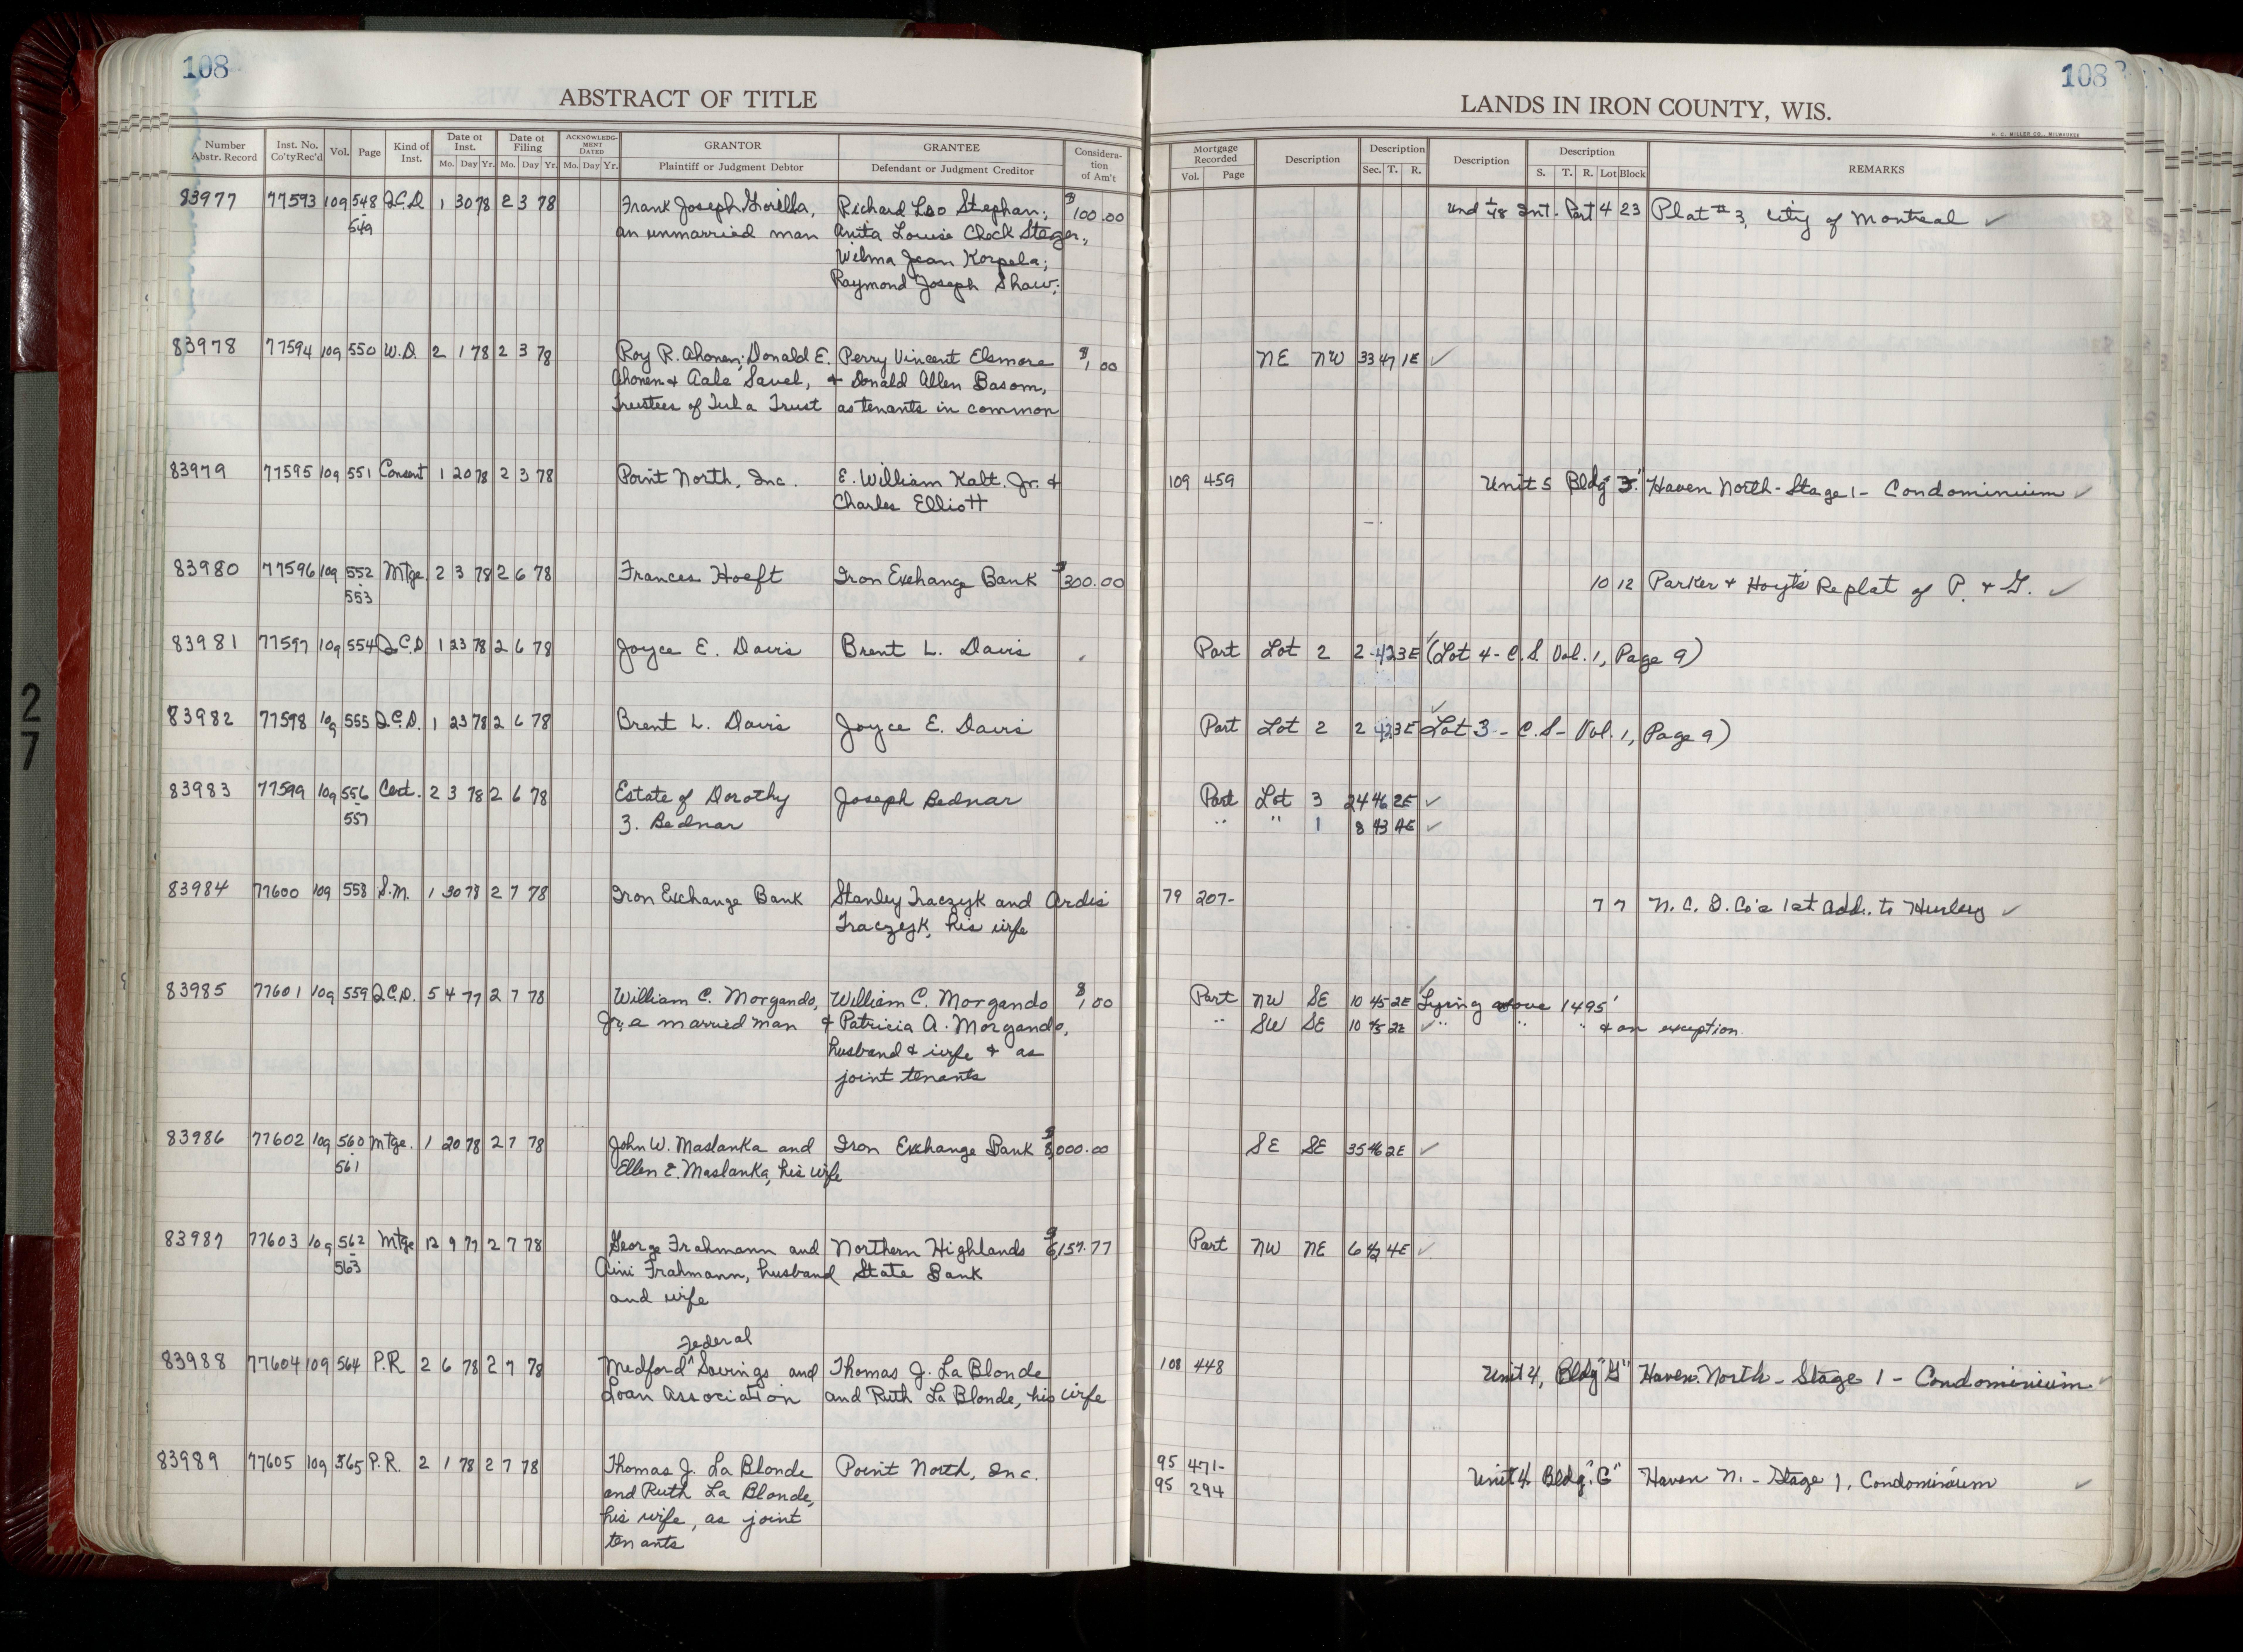 108
ABSTRACT OF TITLE
Number Abstr. Record | Inst. No. Co'ty Rec'd | Vol. | Page | Kind of Inst. | Date of Inst. Mo. Day Yr. | Date of Filing Mo. Day Yr. | ACKNOWLEDGMENT DATED Mo. Day Yr. | GRANTOR Plaintiff or Judgment Debtor | GRANTEE Defendant or Judgment Creditor | Consideration of Am't
108
LANDS IN IRON COUNTY, WIS.
H. C. MILLER CO., MILWAUKEE
Mortgage Recorded Vol. Page | Description | Description Sec. T. R. | Description | Description S. T. R. Lot Block | REMARKS
83977 77593 109 548 Q.C.D. 1 30 78 2 3 78 Frank Joseph Richard Leo Stephan; $100.00 Und 1/48 Int. Part 4 23 Plat #3, City of Montreal ✓
- 549 an unmarried man Anita Louise Clock Steger;
Wilma Jean Korpela;
Raymond Joseph Shaw;
83978 77594 109 550 W.D. 2 1 78 2 3 78 Roy R. Ahonen; Donald E. Perry Vincent Elsmore $1.00 NE NW 33 47 1E ✓
Ahonen & Aale Savel, & Donald Allen Basom,
Trustees of Tula Trust as tenants in common
83979 77595 109 551 Consent 1 20 78 2 3 78 Point North, Inc. E. William Kalt. Jr. & 109 459 Unit 5 Bldg Haven North - Stage 1 - Condominium ✓
Charles Elliott
83980 77596 109 552 Mtge. 2 3 78 2 6 78 Frances Hoeft Iron Exchange Bank $300.00 10 12 Parker & Hoyt's Replat of P. & G. ✓
- 553
83981 77597 109 554 Q.C.D. 1 23 78 2 6 78 Joyce E. Davis Brent L. Davis Part Lot 2 2 42 3E ✓ (Lot 4 - C.S. Vol. 1, Page 9)
83982 77598 109 555 Q.C.D. 1 23 78 2 6 78 Brent L. Davis Joyce E. Davis Part Lot 2 2 42 3E ✓ Lot 3 - C.S - Vol. 1, Page 9)
83983 77599 109 556 Cert. 2 3 78 2 6 78 Estate of Dorothy Joseph Bednar Part Lot 3 24 46 2E ✓
- 557 Z. Bednar " " 1 8 43 4E ✓
83984 77600 109 558 S.M. 1 30 78 2 7 78 Iron Exchange Bank Stanley Traczyk and Ardis 79 207- 7 7 N. C. D. Co's 1st Add. to Hurley ✓
Traczyk, his wife
83985 77601 109 559 Q.C.D. 5 4 77 2 7 78 William C. Morgando, William C. Morgando $1.00 Part NW SE 10 45 2E ✓ Lying above 1495'
Jr, a married man & Patricia A. Morgando, " SW SE 10 45 2E ✓ " " " & an exception.
husband & wife & as
joint tenants
83986 77602 109 560 Mtge. 1 20 78 2 7 78 John W. Maslanka and Iron Exchange Bank $8,000.00 SE SE 35 46 2E ✓
- 561 Ellen E. Maslanka, his wife
83987 77603 109 562 Mtge 12 9 77 2 7 78 George Frahmann and Northern Highlands $6,157.77 Part NW NE 6 42 4E ✓
- 563 Aini Frahmann, husband State Bank
and wife
Federal
83988 77604 109 564 P.R. 2 6 78 2 7 78 Medford ^ Savings and Thomas J. La Blonde 108 448 Unit 4, Bldg "G" Haven North - Stage 1 - Condominium ✓
Loan Association and Ruth La Blonde, his wife
83989 77605 109 565 P.R. 2 1 78 2 7 78 Thomas J. La Blonde Point North, Inc. 95 471- Unit 4 Bldg. "G" Haven N. - Stage 1, Condominium ✓
and Ruth La Blonde, 95 294
his wife, as joint
tenants
27